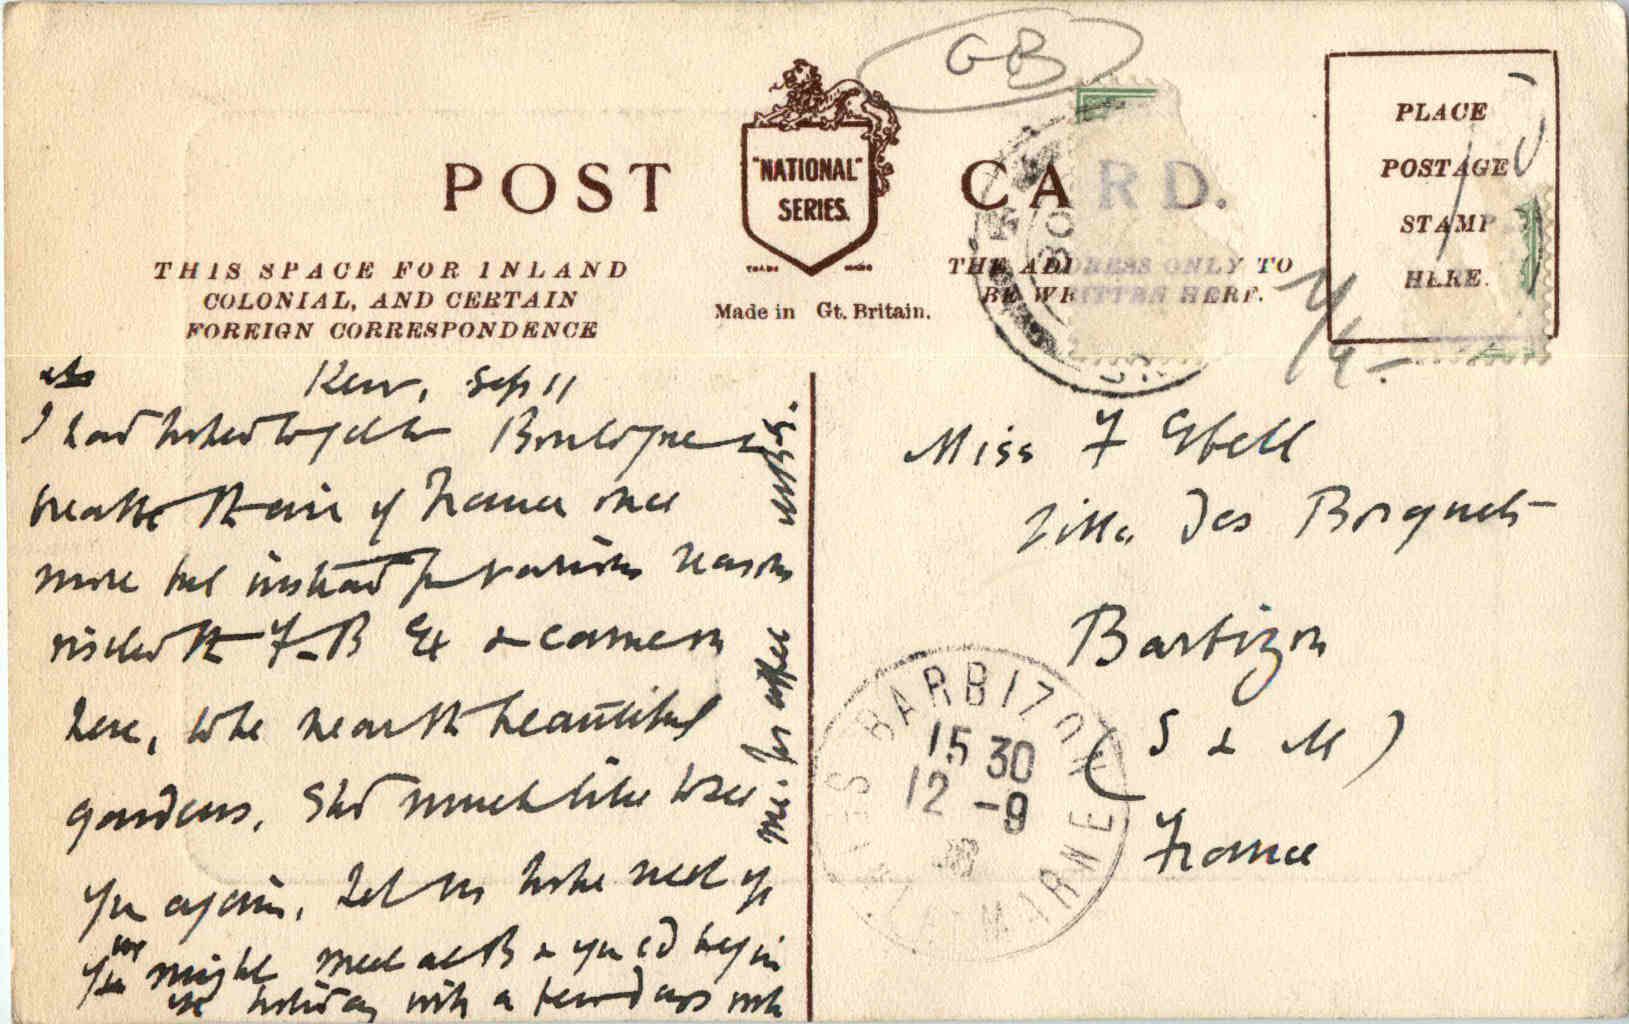 GB
POST CARD.
"NATIONAL"
SERIES.
TRADE MARK
Made in Gt. Britain.
THIS SPACE FOR INLAND
COLONIAL, AND CERTAIN
FOREIGN CORRESPONDENCE
THE ADDRESS ONLY TO
BE WRITTEN HERE.
PLACE
POSTAGE
STAMP
HERE.
Kew, Sep 11
I had hoped to get to Boulogne &
breathe the air of France once
more but instead for various reasons
visited the F-B Ex & came on
here, to be near the beautiful
gardens. Shd much like to see
you again. Let us hope next yr
we might meet at B & you cd begin
the holiday with a few days with
me.
Miss F Ebell
Villa des Bosquets
Barbizon
(S & M)
France
BARBIZON
15 30
12 -9
SEINE ET MARNE